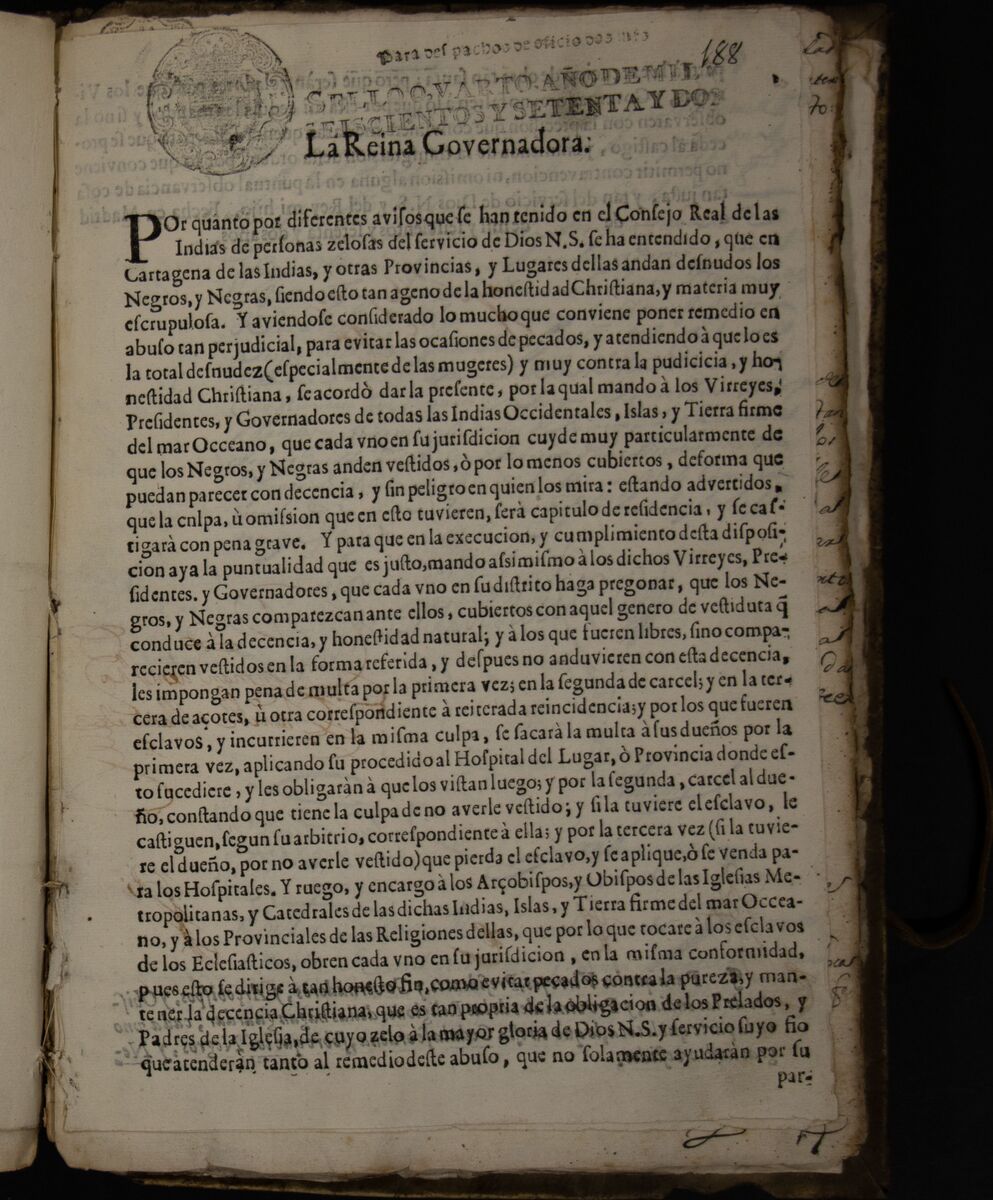 Para despachos de oficio dos mrs
188
SELLO QVARTO, AÑO DE MIL
SEISCIENTOS Y SETENTA Y DOS
La Reina Governadora.
POr quanto por diferentes avisos que se han tenido en el Consejo Real de las
Indias de personas zelosas del servicio de Dios N.S. se ha entendido, que en
Cartagena de las Indias, y otras Provincias, y Lugares dellas andan desnudos los
Negros, y Negras, siendo esto tan ageno de la honestidad Christiana, y materia muy
escrupulosa. Y aviendose considerado lo mucho que conviene poner remedio en
abuso tan perjudicial, para evitar las ocasiones de pecados, y atendiendo à que lo es
la total desnudez (especialmente de las mugeres) y muy contra la pudicicia, y ho-
nestidad Christiana, se acordò dar la presente, por la qual mando à los Virreyes,
Presidentes, y Governadores de todas las Indias Occidentales, Islas, y Tierra firme
del mar Occeano, que cada vno en su jurisdicion cuyde muy particularmente de
que los Negros, y Negras anden vestidos, ò por lo menos cubiertos, deforma que
puedan parecer con decencia, y sin peligro en quien los mira: estando advertidos,
que la culpa, ù omission que en esto tuvieren, serà capitulo de residencia, y se cas-
tigarà con pena grave. Y para que en la execucion, y cumplimiento desta disposi-
cion aya la puntualidad que es justo, mando assimismo à los dichos Virreyes, Pre-
sidentes. y Governadores, que cada vno en su distrito haga pregonar, que los Ne-
gros, y Negras comparezcan ante ellos, cubiertos con aquel genero de vestidura q̃
conduce à la decencia, y honestidad natural; y à los que fueren libres, sino compa-
recieren vestidos en la forma referida, y despues no anduvieren con esta decencia,
les impongan pena de multa por la primera vez; en la segunda de carcel; y en la ter-
cera de açotes, ù otra correspondiente à reiterada reincidencia; y por los que fueren
esclavos, y incurrieren en la misma culpa, se sacarà la multa à sus dueños por la
primera vez, aplicando su procedido al Hospital del Lugar, ò Provincia donde es-
to sucediere, y les obligaràn à que los vistan luego; y por la segunda, carcel al due-
ño, constando que tiene la culpa de no averle vestido; y si la tuviere el esclavo, le
castiguen, segun su arbitrio, correspondiente à ella; y por la tercera vez (si la tuvie-
re el dueño, por no averle vestido) que pierda el esclavo, y se aplique, ò se venda pa-
ra los Hospitales. Y ruego, y encargo à los Arçobispos, y Obispos de las Iglesias Me-
tropolitanas, y Catedrales de las dichas Indias, Islas, y Tierra firme del mar Occea-
no, y à los Provinciales de las Religiones dellas, que por lo que tocare à los esclavos
de los Eclesiasticos, obren cada vno en su jurisdicion, en la misma conformidad,
pues esto se dirige à tan honesto fin, como evitar pecados contra la pureza, y man-
tener la decencia Christiana, que es tan propria de la obligacion de los Prelados, y
Padres de la Iglesia, de cuyo zelo à la mayor gloria de Dios N.S. y servicio suyo fio
que atenderàn tanto al remedio deste abuso, que no solamente ayudaràn por su
par-